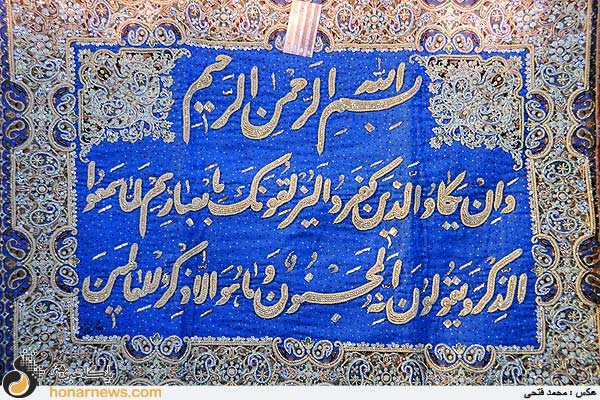 بسم الله الرحمن الرحیم
وان یکاد الذین کفروا لیزلقونک بابصارهم لما سمعوا
الذکر و یقولون انه لمجنون و ما هو الا ذکر للعالمین
honarnews.com
عکس : محمد فتحی